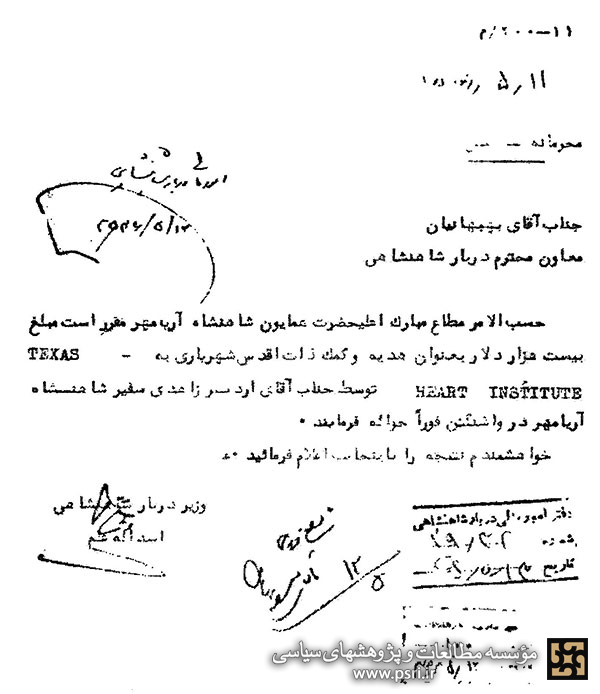 ۱۱-۲۰۰/م
۵/۱۱
محرمانه -
۲۵۳۶/۵/۱۲
جناب آقای بهبهانیان
معاون محترم دربار شاهنشاهی
حسب الامر مطاع مبارك اعلیحضرت همایون شاهنشاه آریامهر مقرر است مبلغ
بیست هزار دلار بعنوان هدیه و کمک ذات اقدس شهریاری به - TEXAS
HEART INSTITUTE توسط جناب آقای اردشیر زاهدی سفیر شاهنشاه
آریامهر در واشنگتن فوراً حواله فرمایند .
خواهشمندم نتیجه را باینجانب اعلام فرمائید .
وزیر دربار شاهنشاهی
اسداله علم
دفتر امور مالی دربار شاهنشاهی
شماره
تاریخ
۱۲/۵
مؤسسه مطالعات و پژوهشهای سیاسی
www.psri.ir